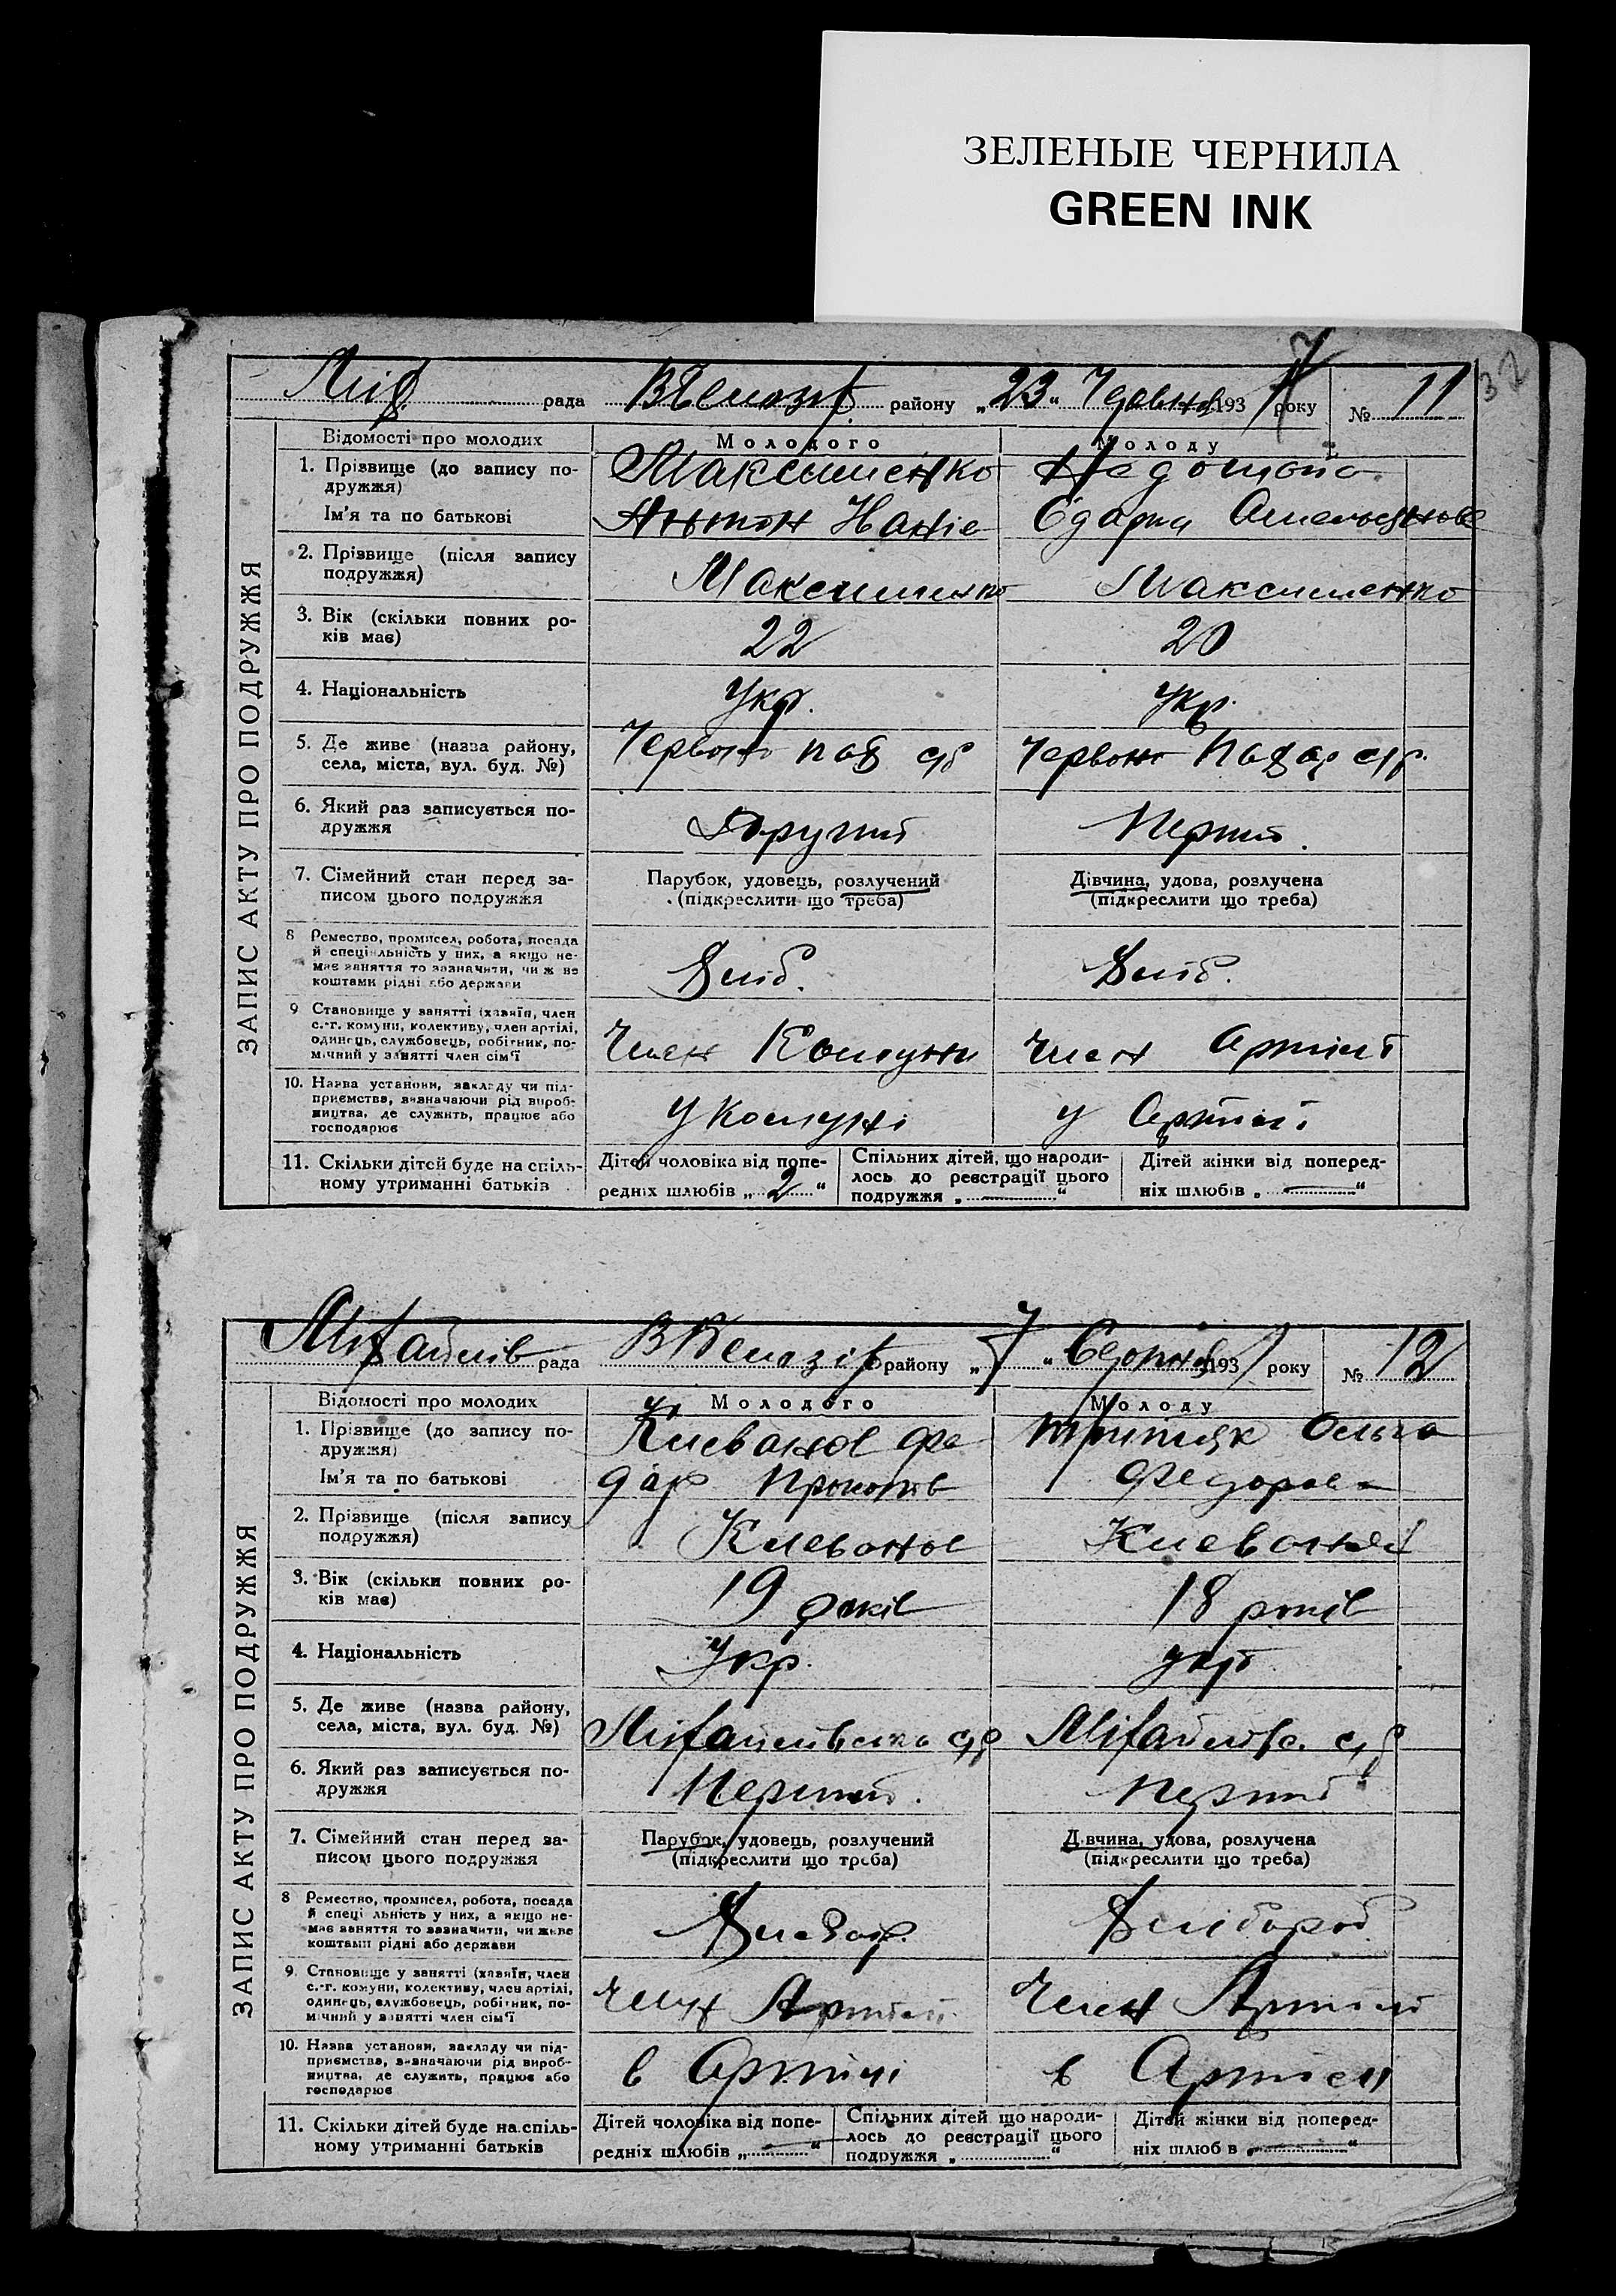 ЗЕЛЕНЫЕ ЧЕРНИЛА
GREEN INK
32
Мих. рада район у „23“ Червня 1931 року № 11
ЗАПИС АКТУ ПРО ПОДРУЖЖЯ
Відомості про молодих Молодого Молоду
1. Прізвище (до запису подружжя) Максименко
Ім'я та по батькові Антон Одарка
2. Прізвище (після запису подружжя) Максименко Максименко
3. Вік (скільки повних років має) 22 20
4. Національність Укр. Укр.
5. Де живе (назва району, села, міста, вул. буд. №) Червоно Червоно
6. Який раз записується подружжя Другий Перший
7. Сімейний стан перед записом цього подружжя Парубок, удовець, розлучений Дівчина, удова, розлучена
(підкреслити що треба) (підкреслити що треба)
8 Ремество, промисел, робота, посада й спеціяльність у них, а якщо немає заняття то зазначити, чи живе коштами рідні або держави Хліб. Хліб.
9 Становище у занятті (хазяїн, член с.-г. комуни, колективу, член артілі, одинець, службовець, робітник, помічний у занятті член сім'ї Член Комуни член Артілі
10. Назва установи, закладу чи підприємства, зазначаючи рід виробництва, де служить, працює або господарює у Комуні у Артілі
11. Скільки дітей буде на спільному утриманні батьків Дітей чоловіка від попередніх шлюбів „2“ Спільних дітей, що народилось до реєстрації цього подружжя „—“ Дітей жінки від попередніх шлюбів „—“
Михайлів рада району „7“ Серпня 1931 року № 12
ЗАПИС АКТУ ПРО ПОДРУЖЖЯ
Відомості про молодих Молодого Молоду
1. Прізвище (до запису подружжя) Ольга
Ім'я та по батькові Федоров
2. Прізвище (після запису подружжя)
3. Вік (скільки повних років має) 19 років 18 років
4. Національність Укр. укр
5. Де живе (назва району, села, міста, вул. буд. №) Михайлівська с/р
6. Який раз записується подружжя Перший. Перший
7. Сімейний стан перед записом цього подружжя Парубок, удовець, розлучений Дівчина, удова, розлучена
(підкреслити що треба) (підкреслити що треба)
8 Ремество, промисел, робота, посада й спеціяльність у них, а якщо немає заняття то зазначити, чи живе коштами рідні або держави Хлібороб
9. Становище у занятті (хазяїн, член с.-г. комуни, колективу, член артілі, одинець, службовець, робітник, помічний у занятті член сім'ї Член Артілі Член Артілі
10. Назва установи, закладу чи підприємства, зазначаючи рід виробництва, де служить, працює або господарює в Артілі в Артілі
11. Скільки дітей буде на спільному утриманні батьків Дітей чоловіка від попередніх шлюбів „—“ Спільних дітей що народилось до реєстрації цього подружжя „ “ Дітей жінки від попередніх шлюбів „—“